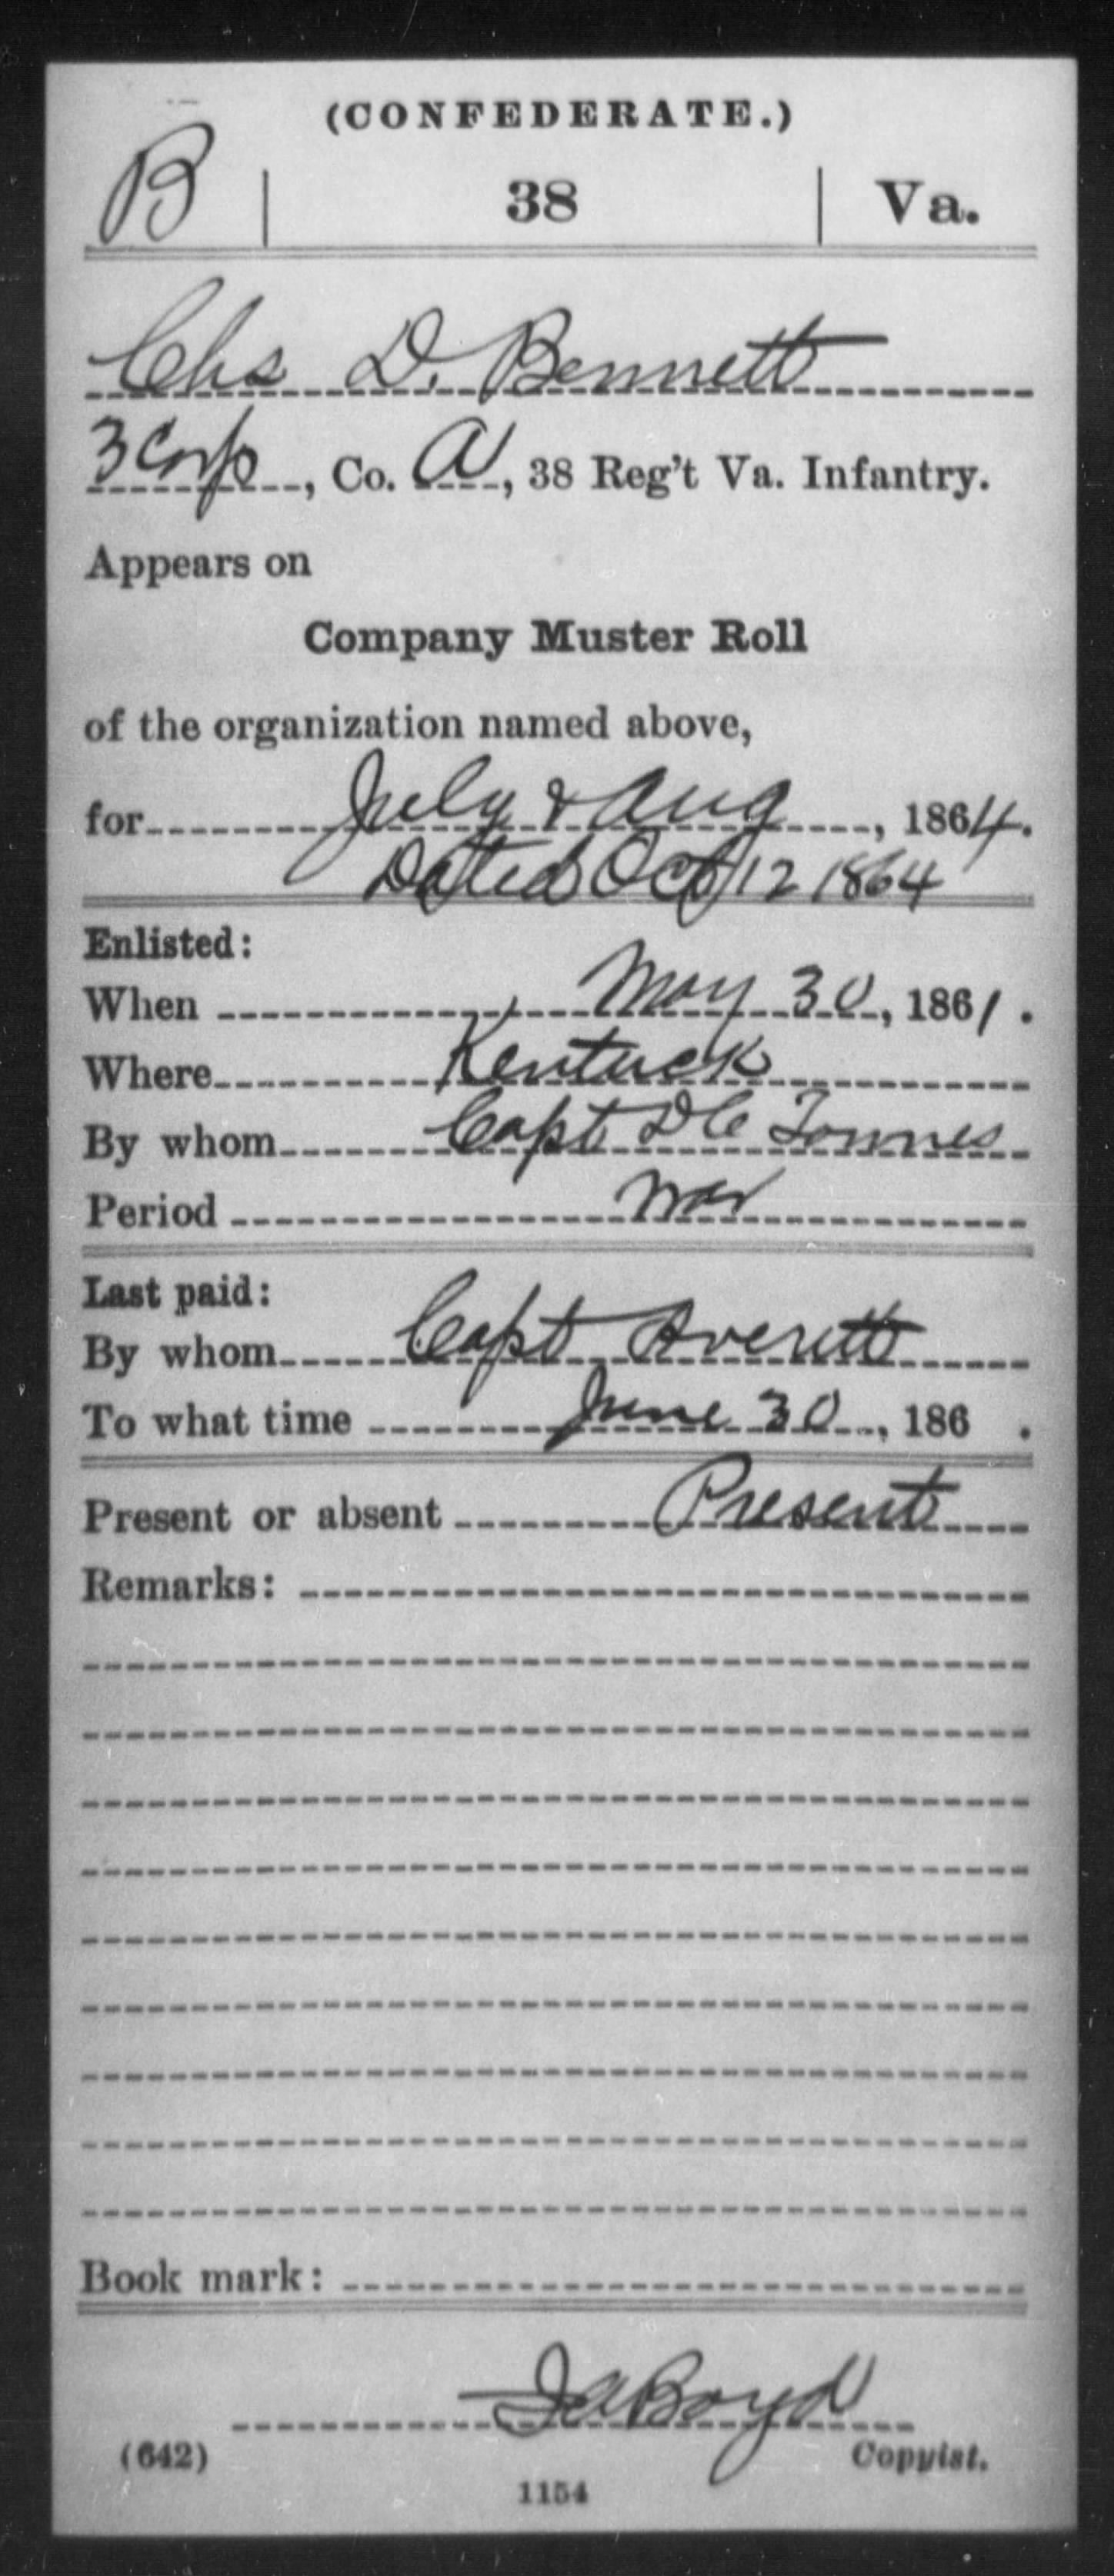 (CONFEDERATE.)
B | 38 | Va.
Chs D. Bennett
3 Corp, Co. A, 38 Reg't Va. Infantry.
Appears on
Company Muster Roll
of the organization named above,
for July & Aug, 1864.
Dated Oct 12 1864
Enlisted:
When May 30, 1861.
Where Kentuck
By whom Capt D C Townes
Period War
Last paid:
By whom Capt Averett
To what time June 30, 186 .
Present or absent Present
Remarks:
Book mark:
J A Boyd
(642) Copyist.
1154